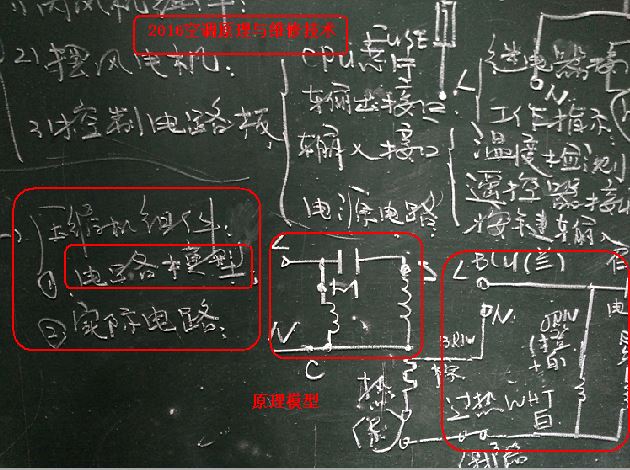 2016空调原理与维修技术
2)摆风电机:
3)控制电路板
CPU芯片
输出接口
输入接口
电源电路
FUSE
L
ON
继电器
工作指示
温度检测
遥控器接
按键输入
压缩机组件:
① 电路模型
② 实际电路:
N
C
原理模型
L BLU(兰)
ON
ORN
(橙
过热 WHT
白
热
保